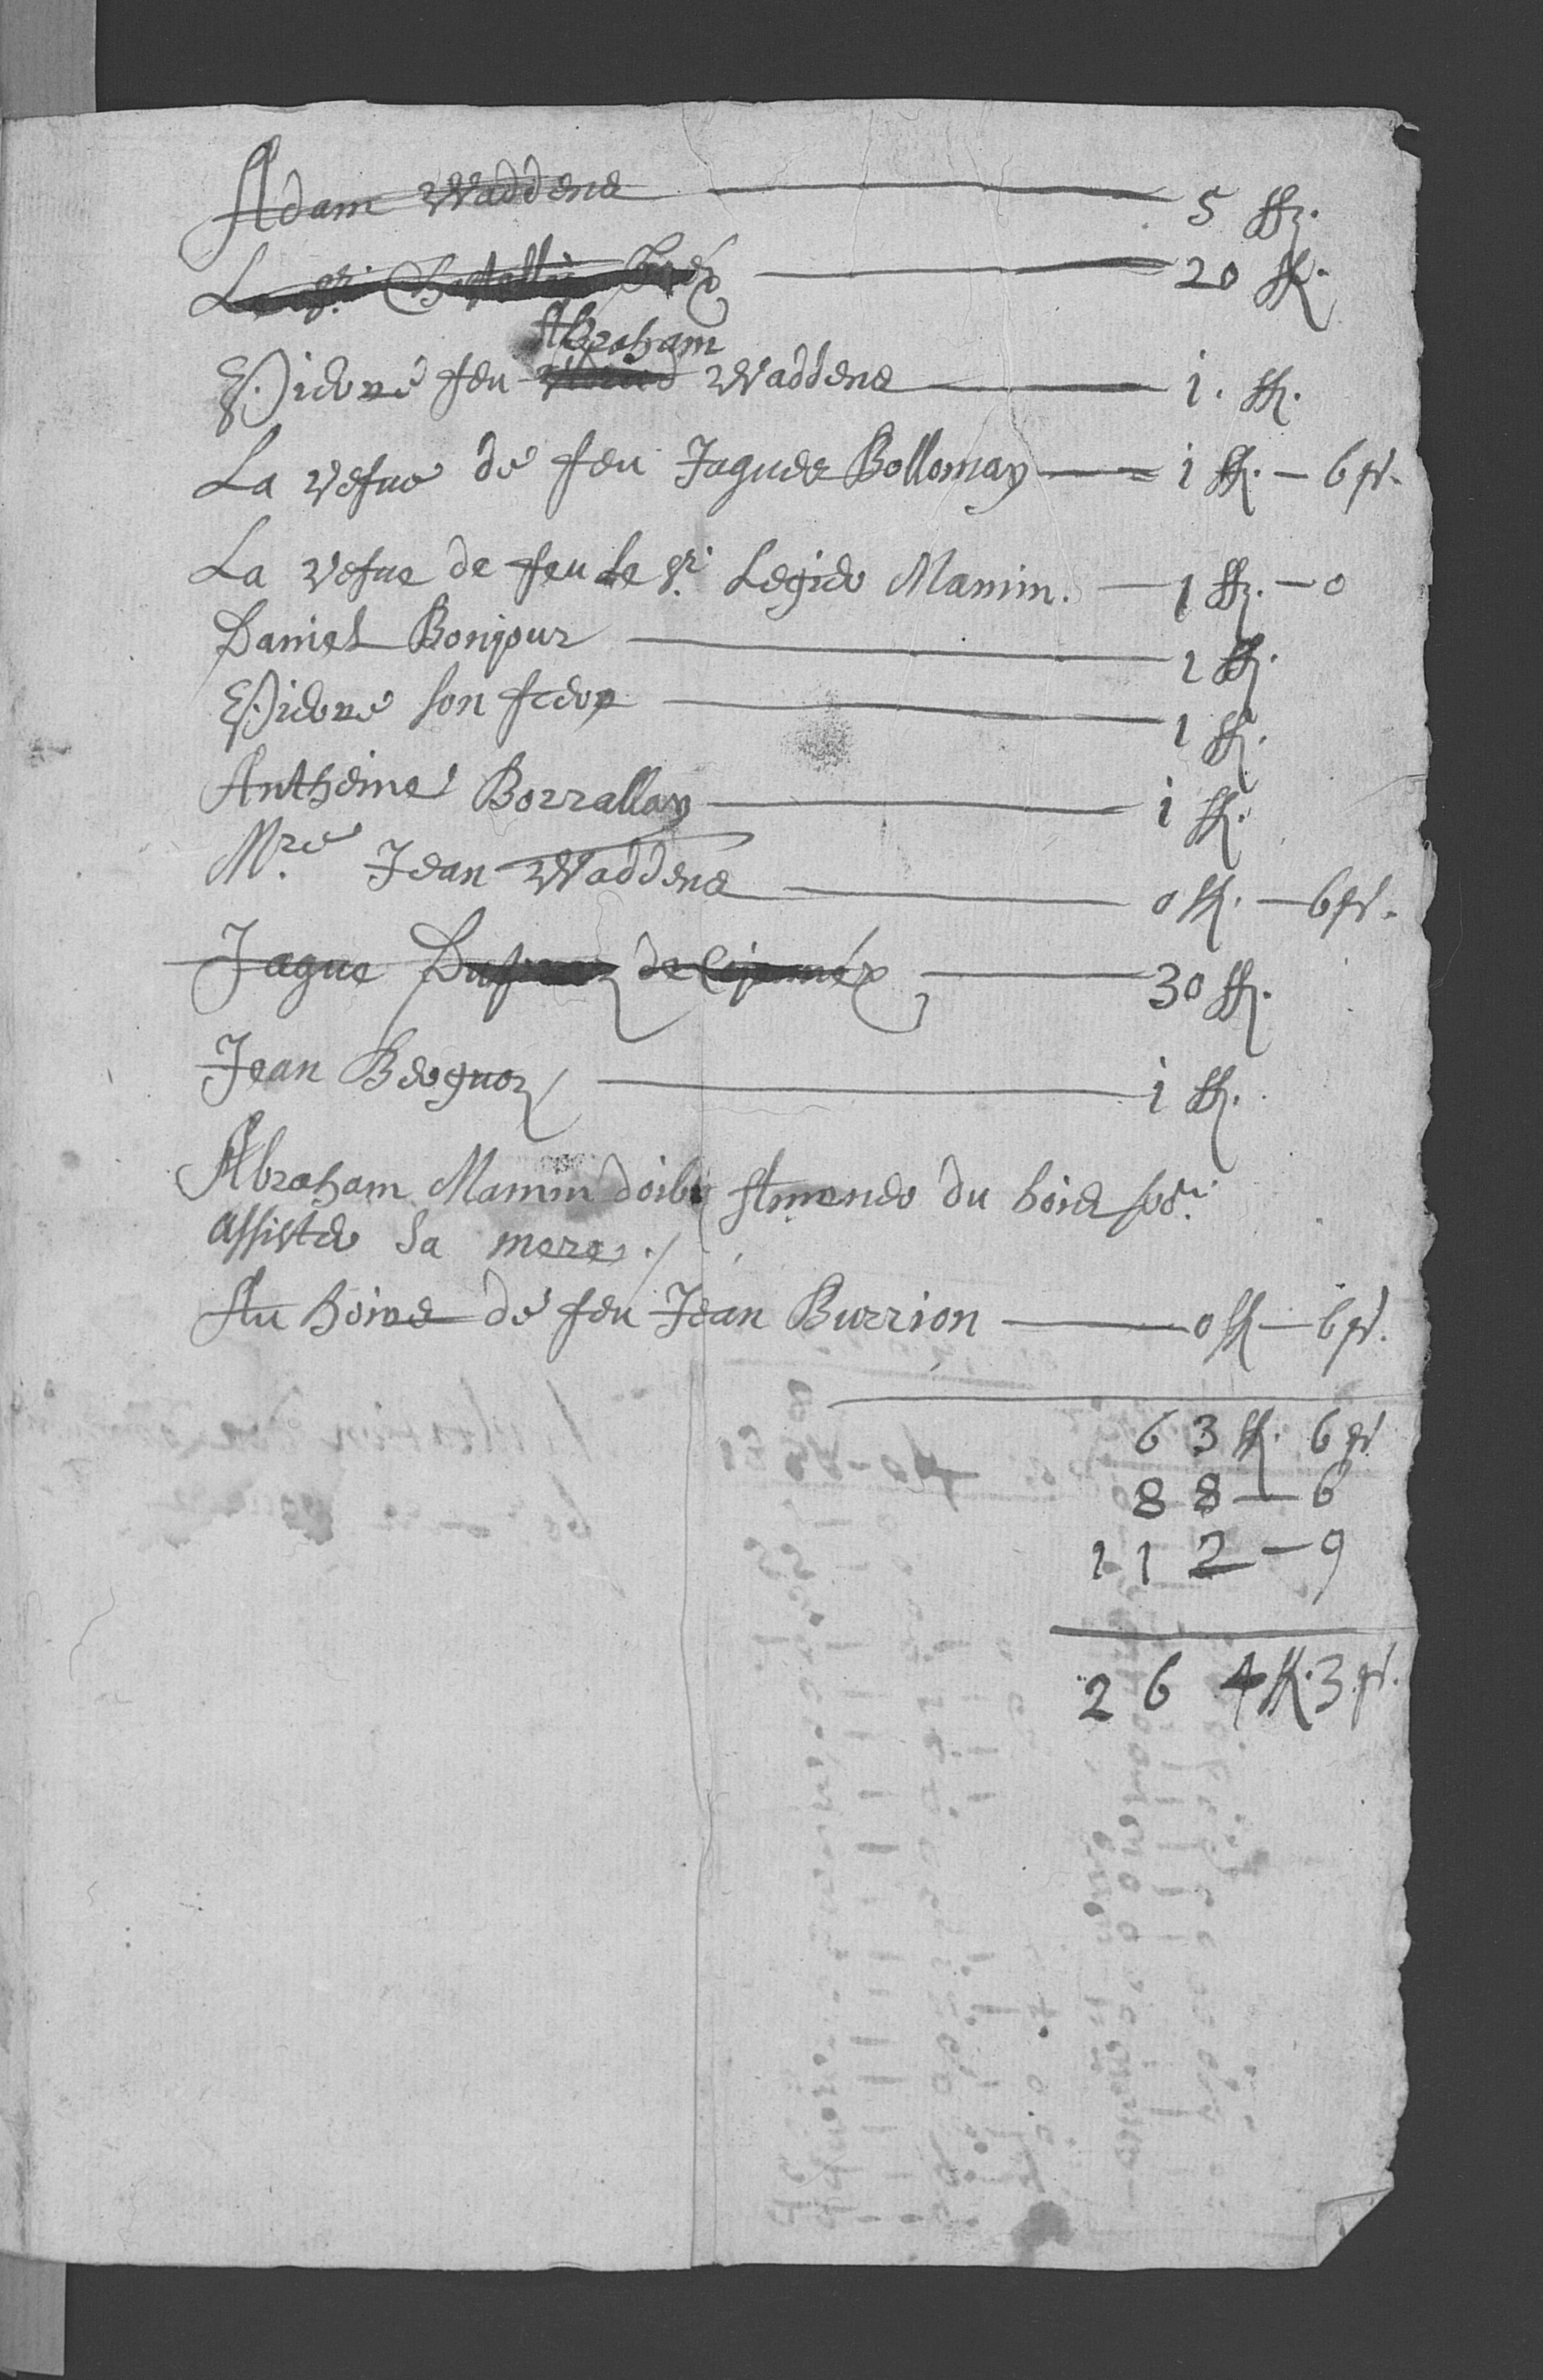 Adam Waddens — 5 ff.
Le Sr. Chastellin — 20 ff.
Abraham
Pierre feu Waddens — 1. ff.
La vefue de feu Jaques Bollomay — 1 ff. — 6 s.
La vefue de feu le Sr. Legier Mamin. — 1 ff. — 0
Daniel Bonjour — 1 ff.
Pierre son frere — 1 ff.
Antheine Borrallay — 1 ff.
Mre. Jean Waddens — 0 ff. — 6 s.
Jaque de — 30 ff.
Jean Berguoz — 1 ff.
Abraham Mamin doibt Amener du bois
assister sa mere.
Au hoirs de feu Jean Burrion — 0 ff — 6 s.
63 ff. 6 s
88 — 6
112 — 9
264 ff. 3 s.